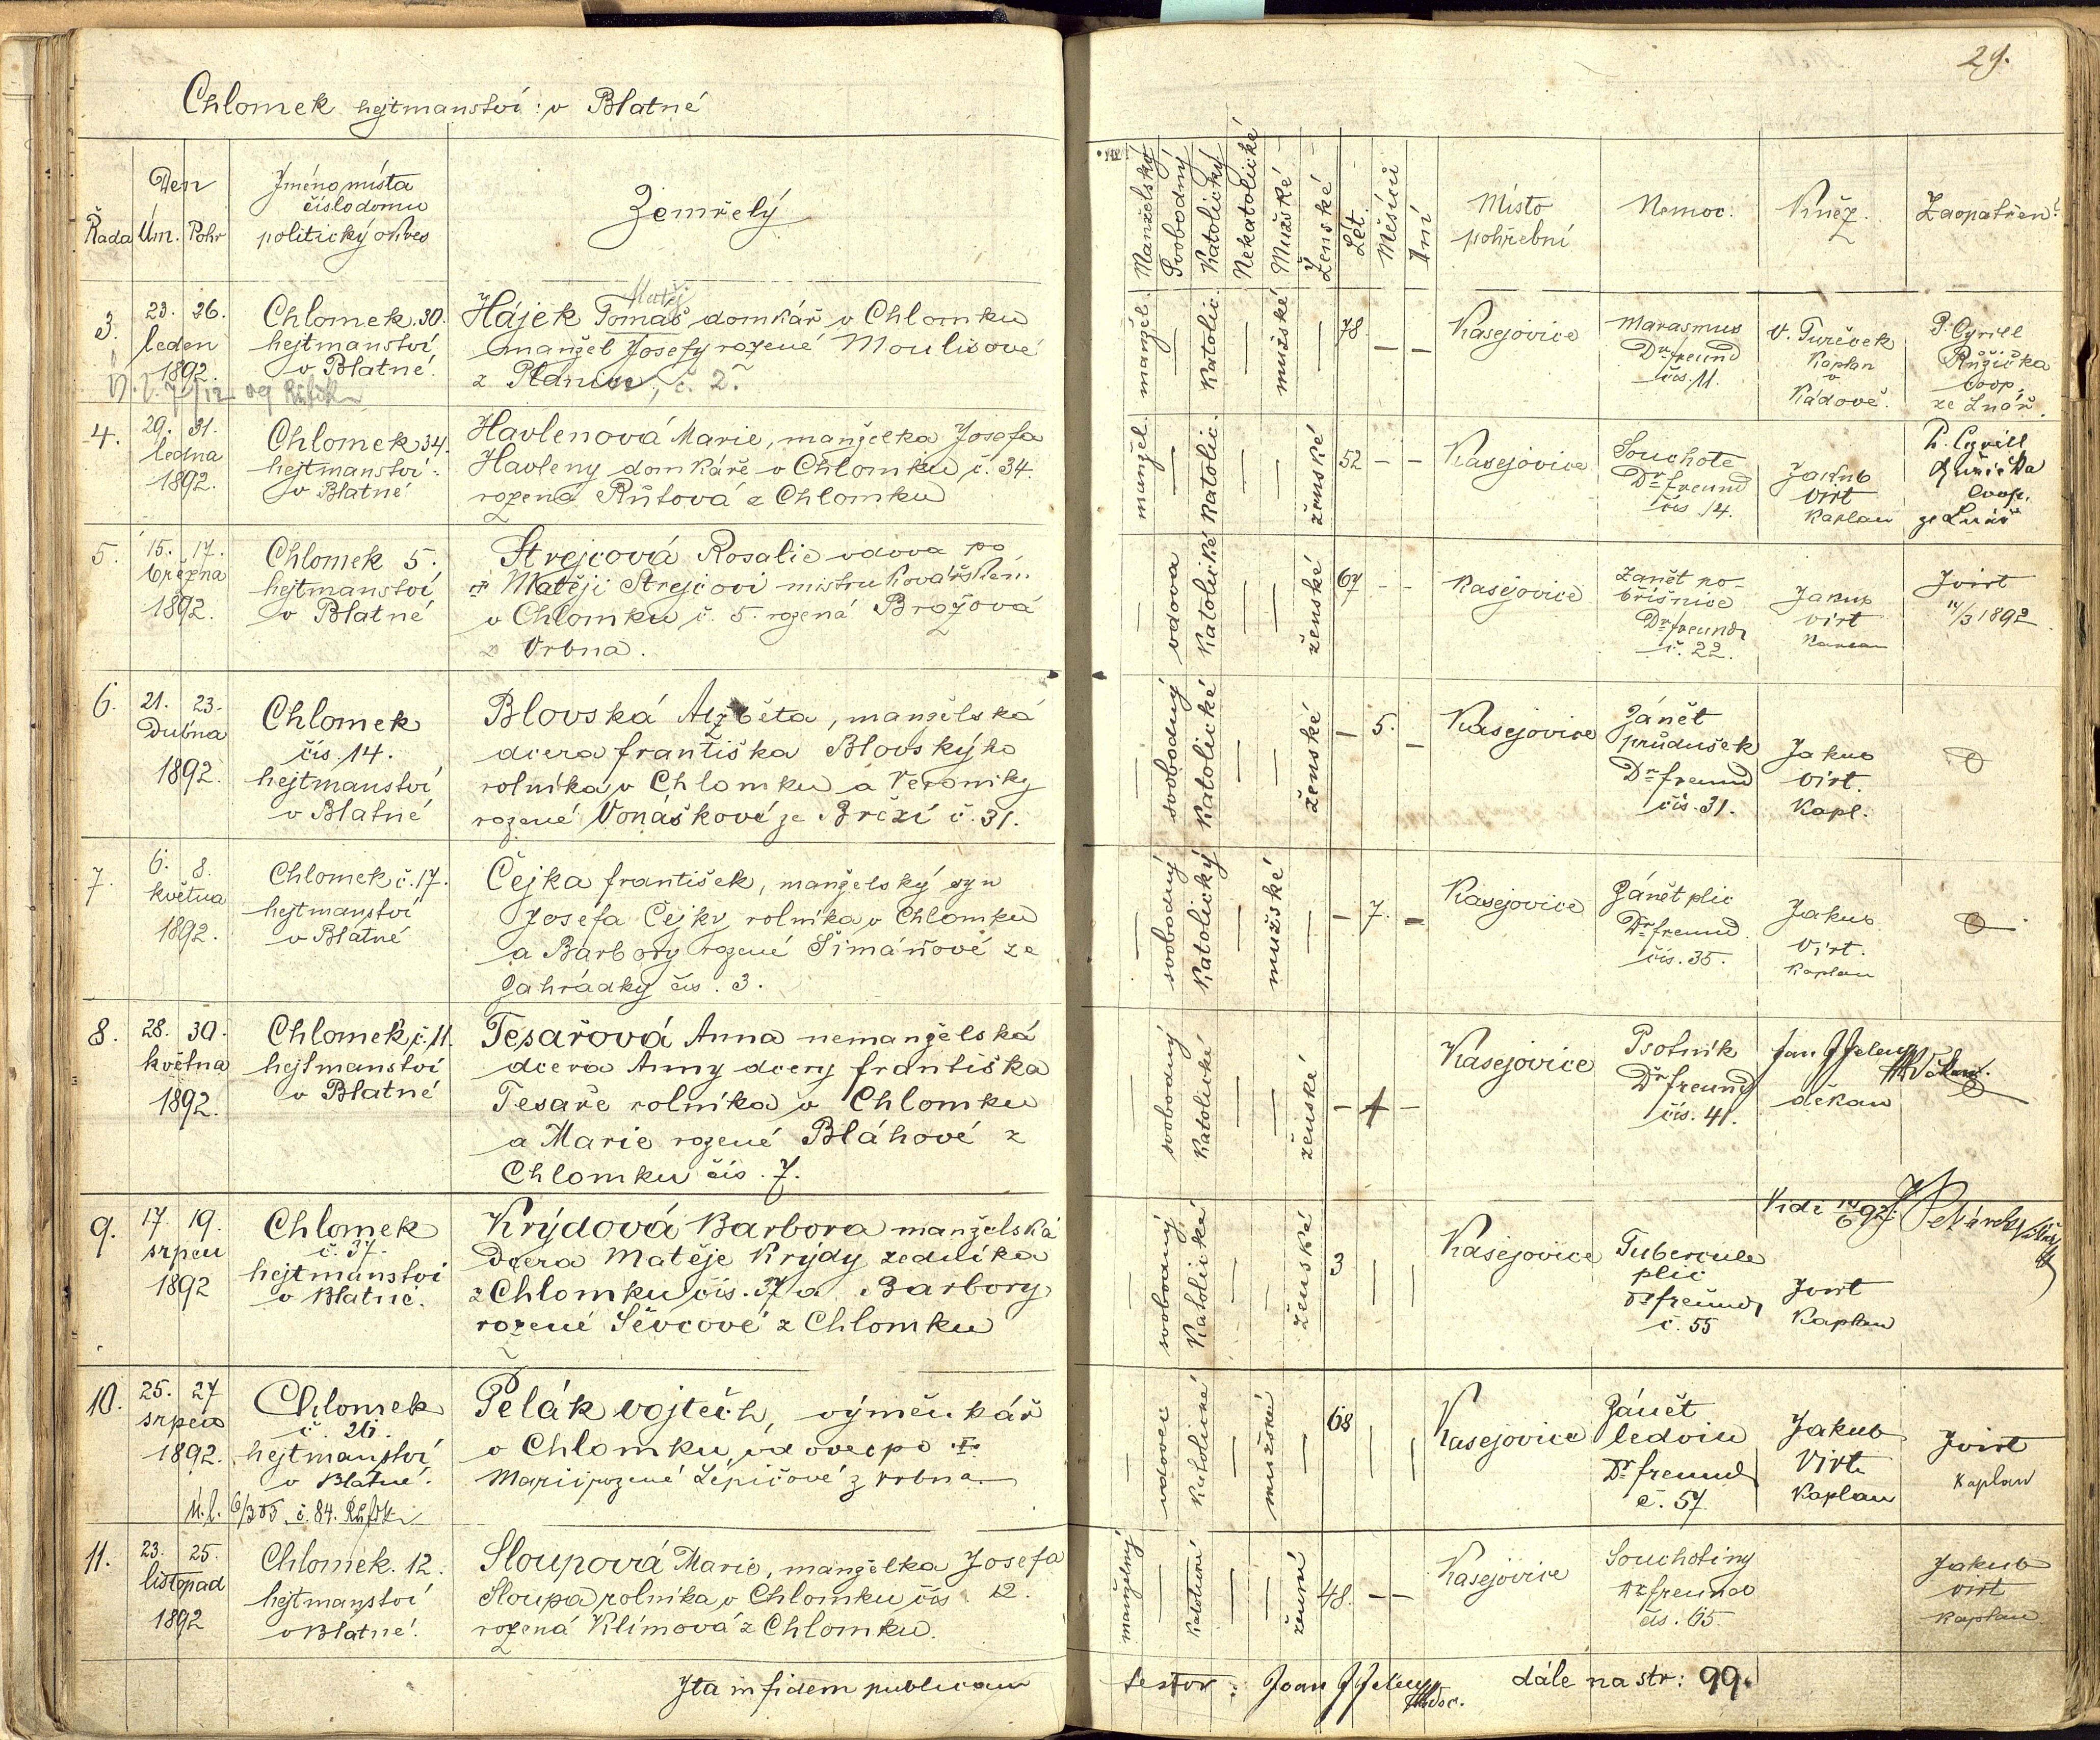 29.
Chlomek hejtmanství: v Blatné
Řada
Den
Úm. Pohr
Jméno místa
číslo domu
politický okres
Zemřelý
Manželský
Svobodný
Katolický
Nekatolické
Mužské
Ženské
Lét.
Měsíců
Dní
Místo
pohřební
Nemoc.
Kněz.
Zaopatření
3.
23. 26.
leden
1892.
Chlomek. 30.
hejtmanství
v Blatné.
Matěj
Hájek Tomáš domkář v Chlomku
manžel Josefy rozené Moulisové
z Plánice, č. 2.
manžel.
Katolic.
mužské
78.
Kasejovice
Marasmus
Dr freund
čís. 11.
V. Tureček
Kaplan
v
Kádově.
P. Cyrill
Růžička
coop.
ze Lnář.
4.
29. 31.
ledna
1892.
Chlomek 34.
hejtmanství
v Blatné
Havlenová Marie, manželka Josefa
Havleny domkáře v Chlomku, č. 34.
rozená Růtová z Chlomku
manžel.
Katolic.
ženské
52
Kasejovice
Souchotě
Dr freund
čís 14.
Jakub
Virt
Kaplan
P. Cyrill
Růžička
coop.
ze Lnář
5.
15. 17.
března
1892.
Chlomek 5.
hejtmanství
v Blatné
Strejcová Rosalie vdova po
Matěji Strejcovi mistru kovářském
v Chlomku č. 5. rozená Brožová
z Vrbna.
vdova
Katolické
ženské
67
Kasejovice
Zanět po-
břišnice
Dr freund
č. 22.
Jakub
Virt
Kaplan
JVirt
14/3 1892
6.
21. 23.
Dubna
1892.
Chlomek
čís. 14.
hejtmanství
v Blatné
Blovská Alžběta, manželská
dcera františka Blovského
rolníka v Chlomku a Veroniky
rozené Vonáškové ze Březí č. 31.
svobodný
Katolické
ženské
5.
Kasejovice
Zánět
průdušek
Dr freund
čís. 31.
Jakub
Virt.
Kapl.
7.
6. 8.
května
1892.
Chlomek č. 17.
hejtmanství
v Blatné
Čejka františek, manželský syn
Josefa Čejky rolníka v Chlomku
a Barbory rozené Šimáňové ze
Zahrádky čís. 3.
svobodný
Katolický
mužské
7.
Kasejovice
Zánět plic
Dr freund
čís. 35.
Jakub
Virt.
Kaplan
8.
28. 30.
května
1892.
Chlomek, č. 11.
hejtmanství
v Blatné
Tesařová Anna nemanželská
dcera Anny dcery františka
Tesaře rolníka v Chlomku
a Marie rozené Bláhové z
Chlomku čís. 7.
svobodný
Katolické
ženské
1
Kasejovice
Psotník
Dr freund
čís. 41.
děkan
9.
17. 19.
srpen
1892
Chlomek
č. 37.
hejtmanství
v Blatné.
Krýdová Barbora manželská
Dcera Matěje Krýdy zedníka
z Chlomku čís. 37 a Barbory,
rozené Ševcové z Chlomku
svobodný
Katolické
Ženské
3
Kasejovice
Tubercule
plic
Dr freund
č. 55
JVirt
Kaplan
Vidi 14/6 92.
10.
25. 27
srpen
1892.
Chlomek
č. 26.
hejtmanství
v Blatné.
Pelák Vojtěch, výměnkář
v Chlomku, vdovec po
Marii rozené Lépičové z Vrbna.
Ú. l. 6/3 05 č. 84.
vdovec
Katolické
mužské
68
Kasejovice
Zánět
ledvin
Dr freund
č. 57
Jakub
Virt
Kaplan
JVirt
Kaplan
11.
23. 25.
listopad
1892
Chlomek. 12.
hejtmanství
v Blatné.
Sloupová Marie, manželka Josefa
Sloupa rolníka v Chlomku čís. 12.
rozená Klímová z Chlomku.
manželský
48.
Kasejovice
Souchotiny
Dr freund
čís. 65.
Jakub
Virt
Kaplan
Ita in fidem publicam
testor: Joan
dále na str: 99.